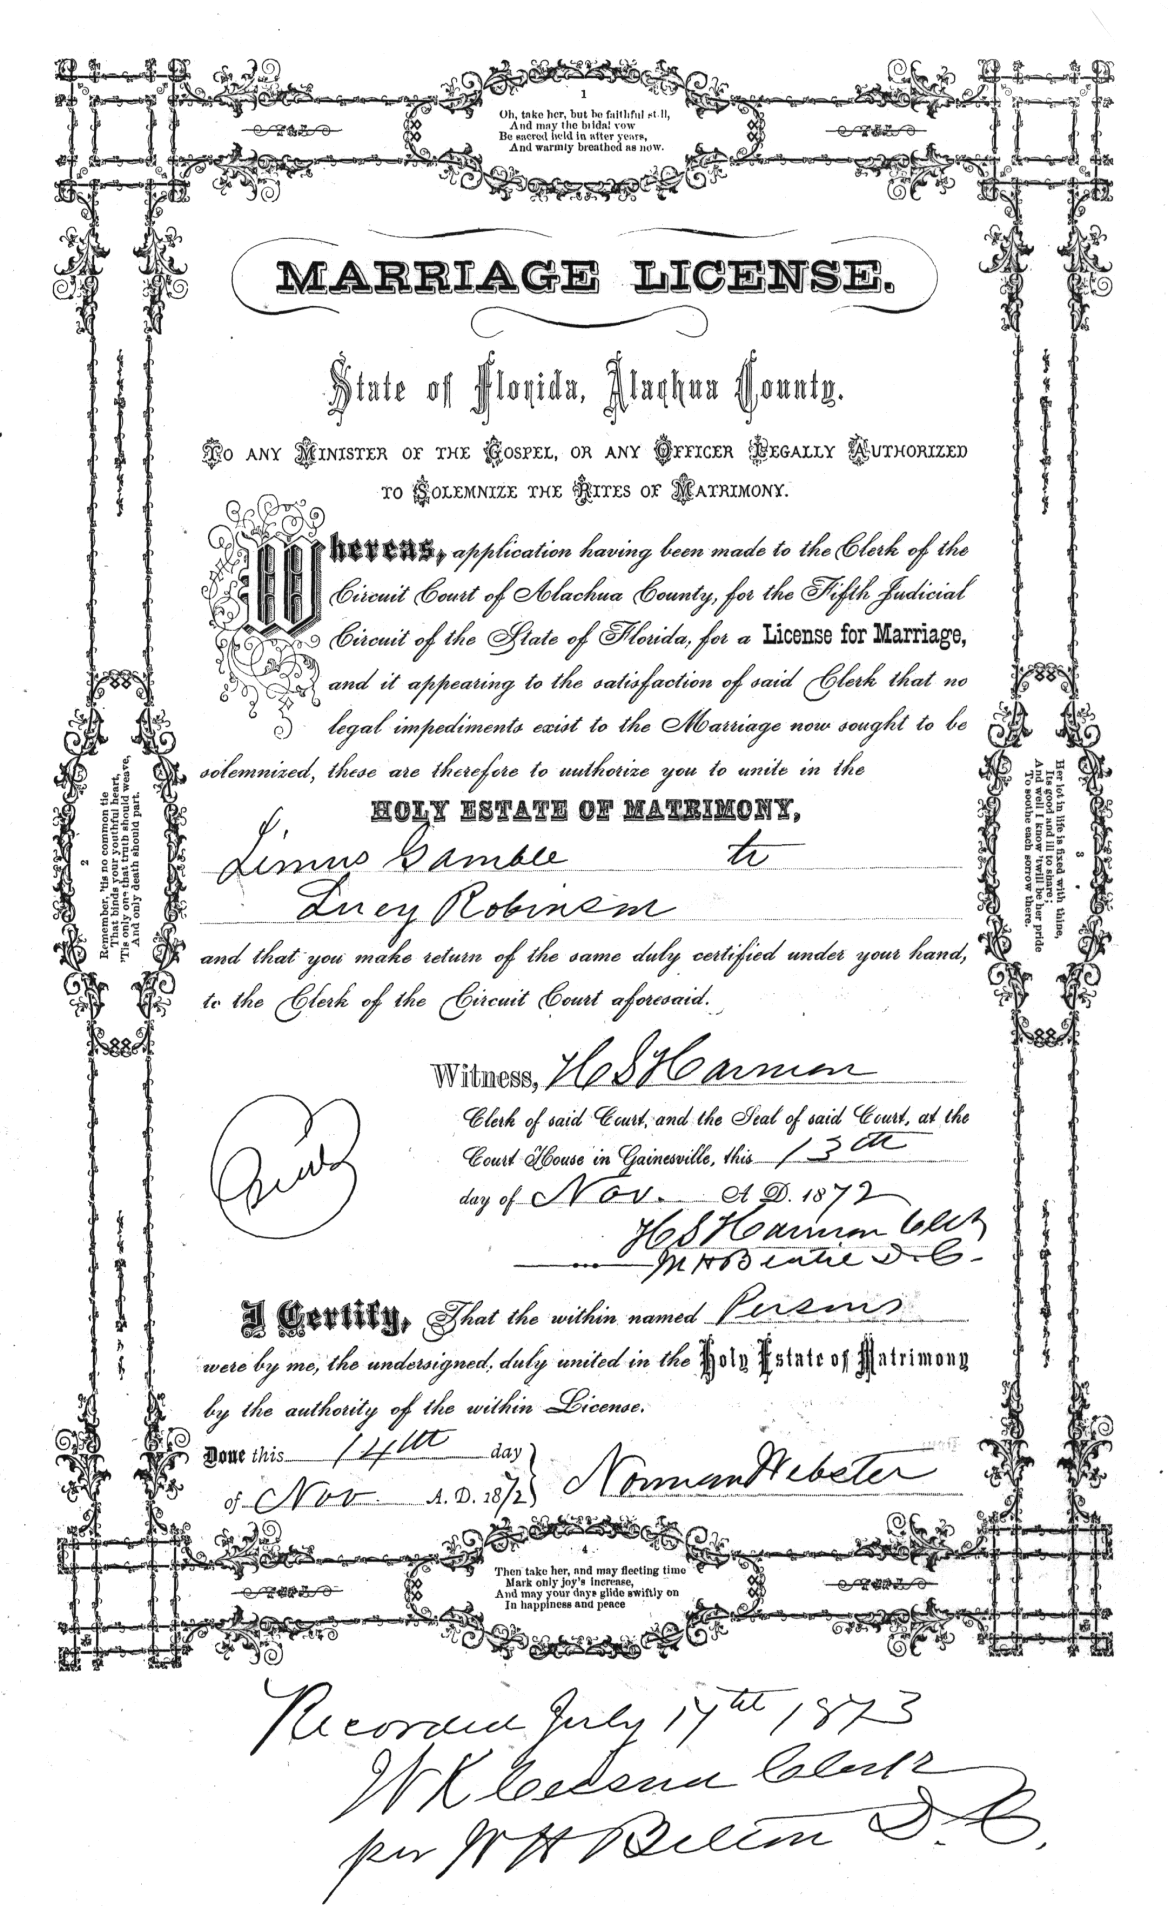 1
Oh, take her, but be faithful still,
And may the bridal vow
Be sacred held in after years,
And warmly breathed as now.
MARRIAGE LICENSE.
State of Florida, Alachua County.
TO ANY MINISTER OF THE GOSPEL, OR ANY OFFICER LEGALLY AUTHORIZED
TO SOLEMNIZE THE RITES OF MATRIMONY.
Whereas, application having been made to the Clerk of the
Circuit Court of Alachua County, for the Fifth Judicial
Circuit of the State of Florida, for a License for Marriage,
and it appearing to the satisfaction of said Clerk that no
legal impediments exist to the Marriage now sought to be
solemnized, these are therefore to authorize you to unite in the
HOLY ESTATE OF MATRIMONY,
Limus Gamble to
Lucy Robinson
and that you make return of the same duly certified under your hand,
to the Clerk of the Circuit Court aforesaid.
2
Remember, 'tis no common tie
That binds your youthful heart,
'Tis only one that truth should weave,
And only death should part.
3
Her lot in life is fixed with thine,
Its good and ill to share;
And well I know 'twill be her pride
To soothe each sorrow there.
Witness, H S Harmon
Clerk of said Court, and the Seal of said Court, at the
Court House in Gainesville, this 13th
day of Nov. A. D. 1872
H S Harmon Clk
M H Beatie D. C.
I Certify, That the within named Persons
were by me, the undersigned, duly united in the Holy Estate of Matrimony
by the authority of the within License.
Done this 14th day
of Nov A. D. 1872 } Norman Webster
4
Then take her, and may fleeting time
Mark only joy's increase,
And may your days glide swiftly on
In happiness and peace
Recorded July 17th 1873
W K Cessna Clerk
per W H Belton D. C.